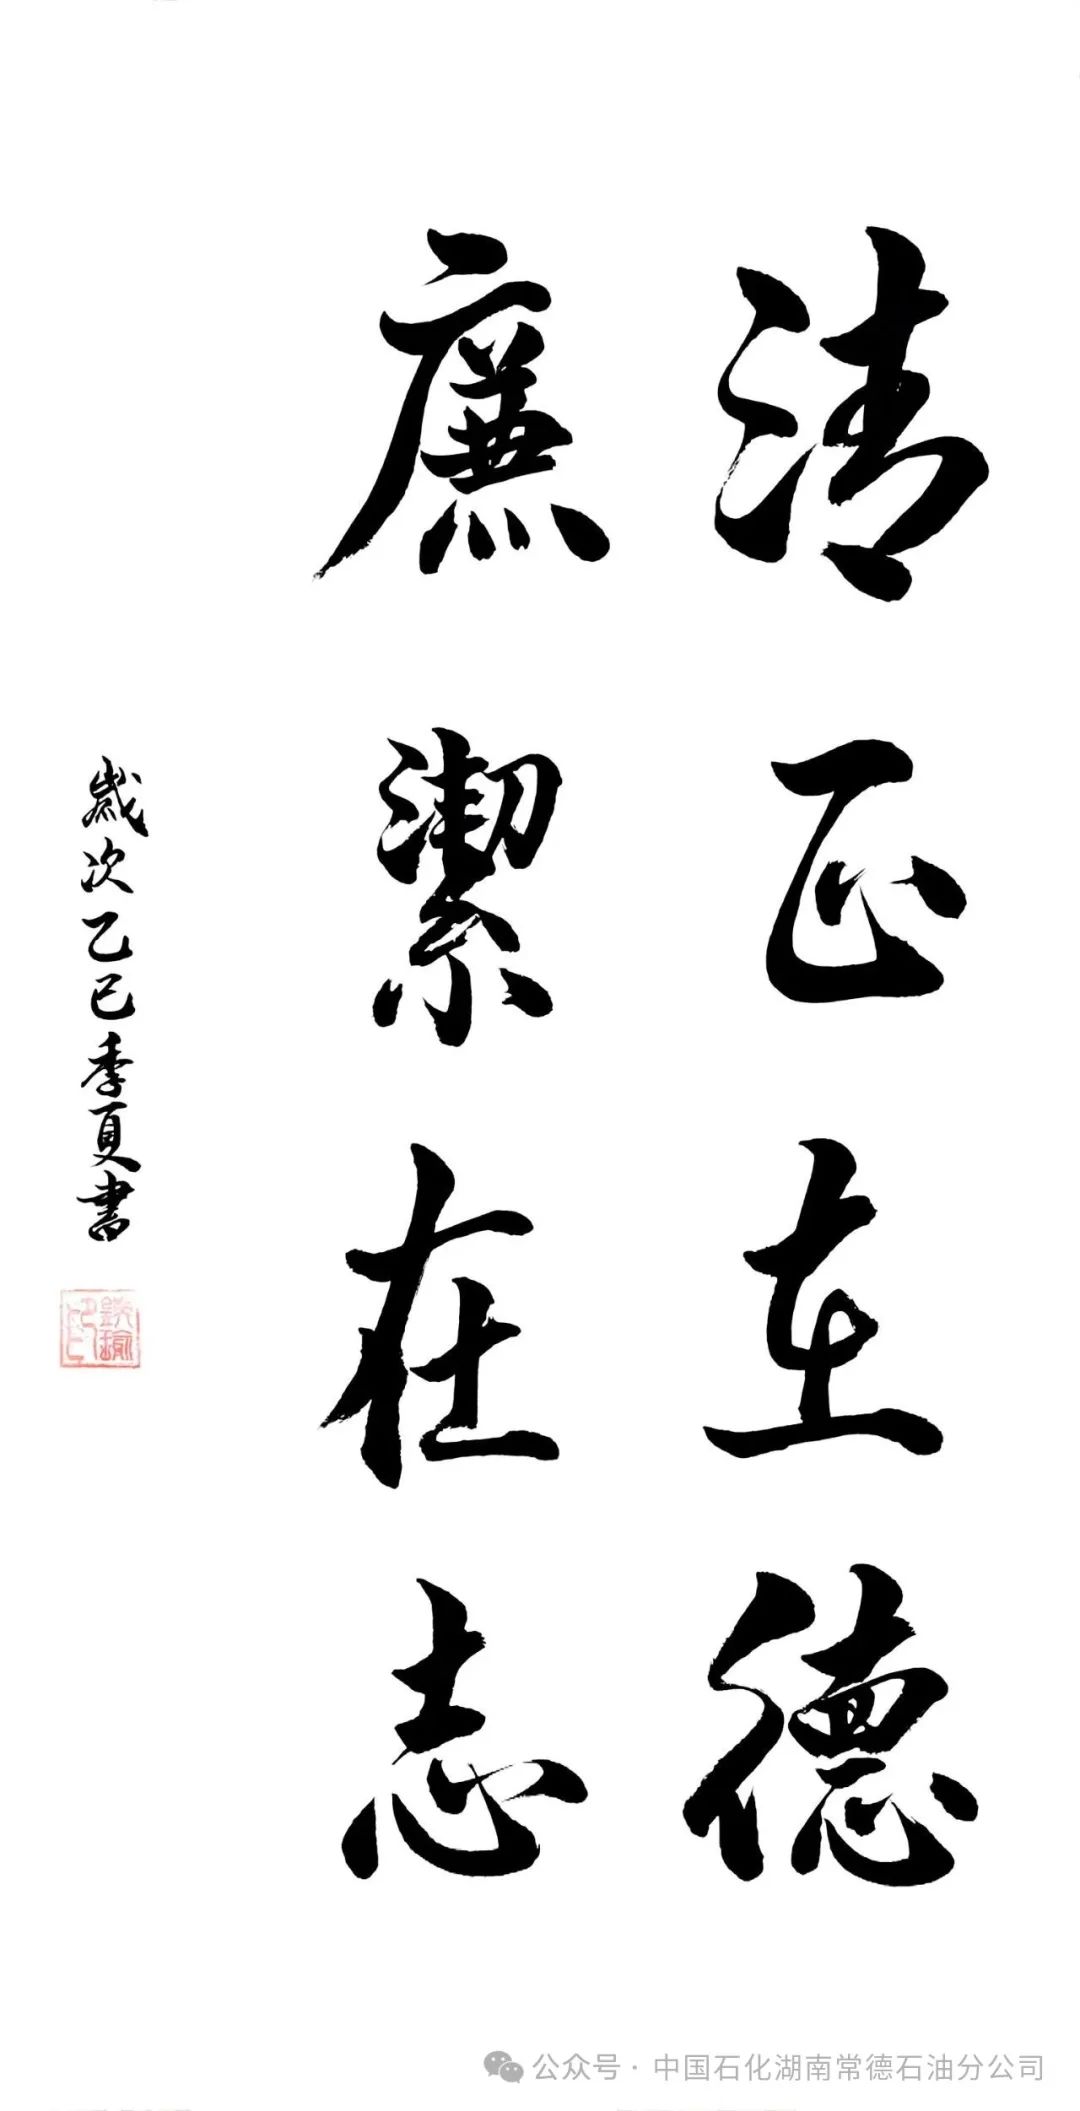 清正在德
廉潔在志
歲次乙巳季夏書
公众号·中国石化湖南常德石油分公司